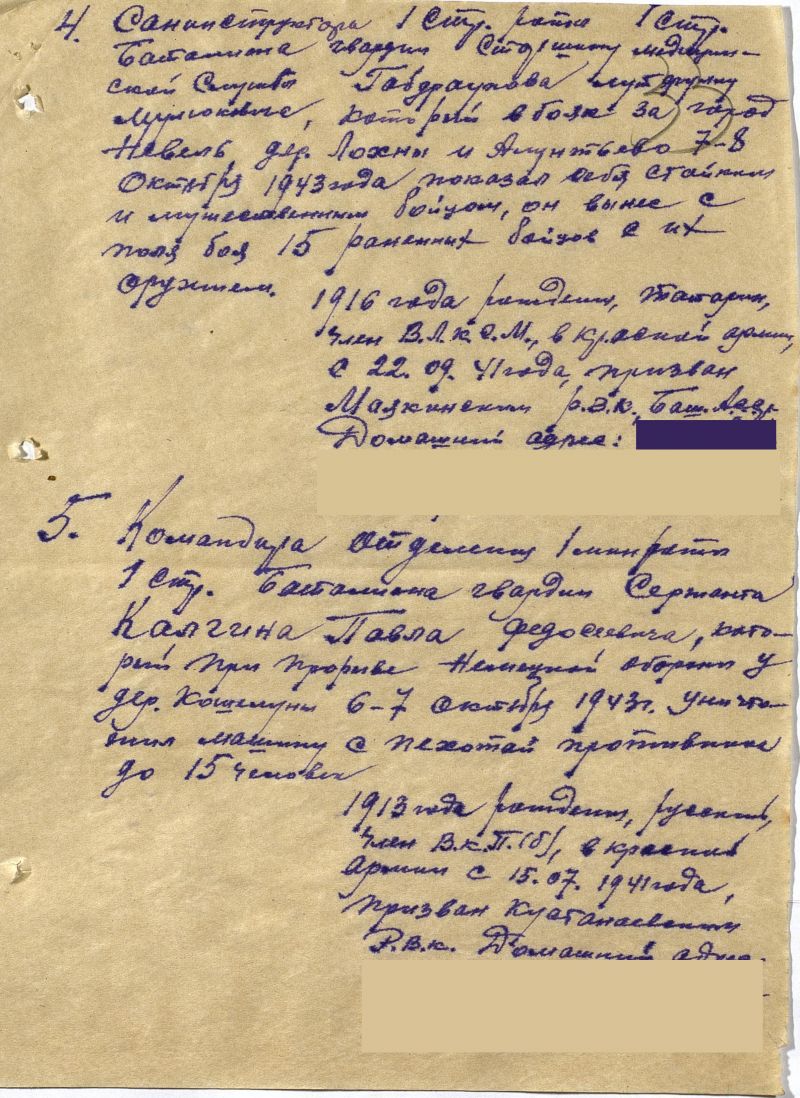 4. Санинструктора 1 стр. роты 1 стр.
Баталиона гвардии Старшину медицин-
ской службы Габдраупова
который в боях за город
Невель дер. Лохны и Алунтьево 7-8
Октября 1943 года показал себя стойким
и мужественным бойцом, он вынес с
поля боя 15 раненных бойцов с их
оружием.
1916 года рождения, татарин,
член В.Л.К.С.М., в красной армии,
с 22. 09. 41 года, призван
Маякинским р.в.к. Баш. Асср
Домашний адрес:
33
5. Командира отделения 1 мин роты
1 стр. Баталиона гвардии Сержанта
Калгина Павла Федосеевича, кото-
рый при прорыве немецкой обороны у
дер. Кошелуны 6-7 октября 1943 г. уничто-
жил машину с пехотой противника
до 15 человек
1913 года рождения, русский,
член В.К.П.(б), в красной
армии с 15. 07. 1941 года,
призван
Р.В.К. Домашний адрес